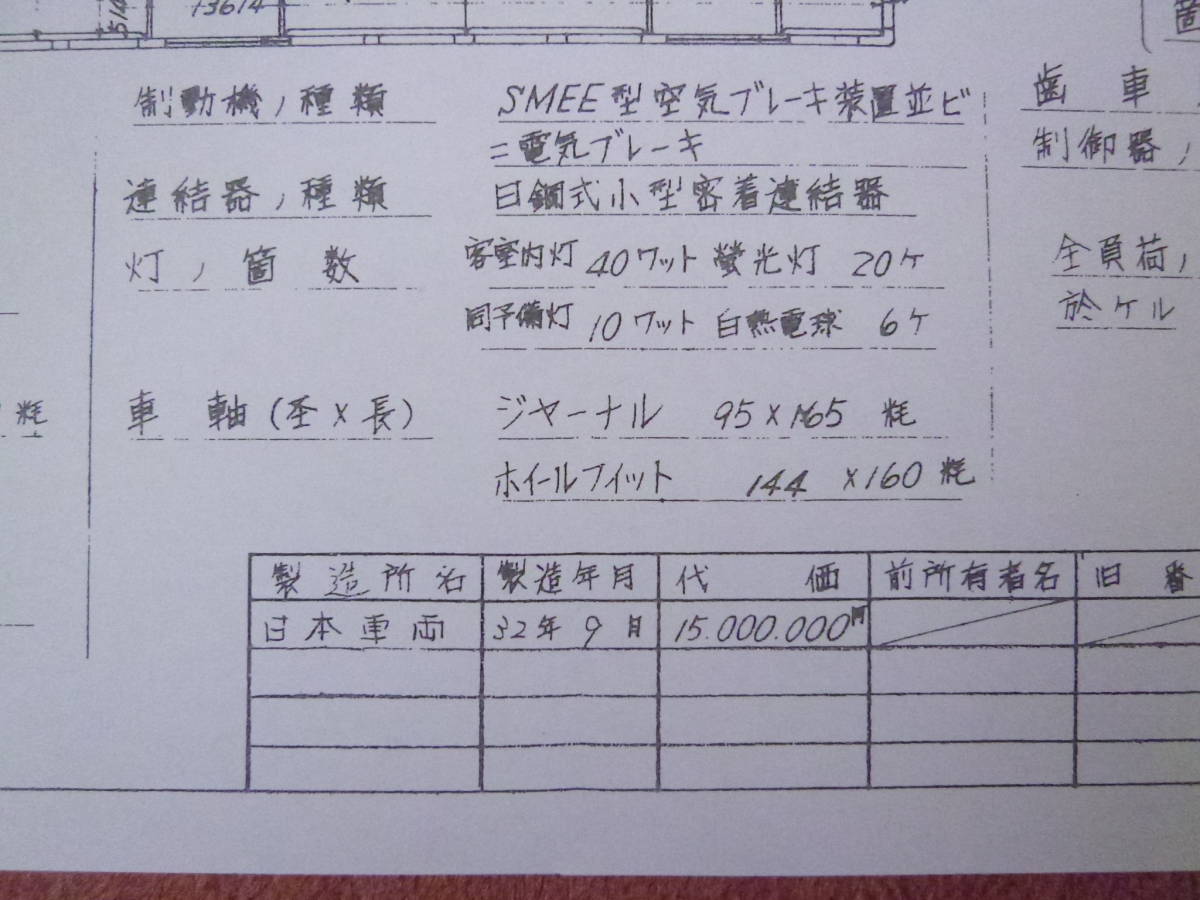 514
13614
制動機ノ種類
SMEE型空気ブレーキ装置並ビ
ニ電気ブレーキ
連結器ノ種類
日鋼式小型密着連結器
灯ノ箇数
客室内灯 40ワット 螢光灯 20ケ
同予備灯 10ワット 白熱電球 6ケ
車軸(圣×長)
ジャーナル 95×165 粍
ホイールフィット 144 ×160 粍
粍
歯車
制御器ノ
全負荷ノ
於ケル
箇
製造所名 製造年月 代価 前所有者名 旧番
日本車両 32年9月 15.000.000円